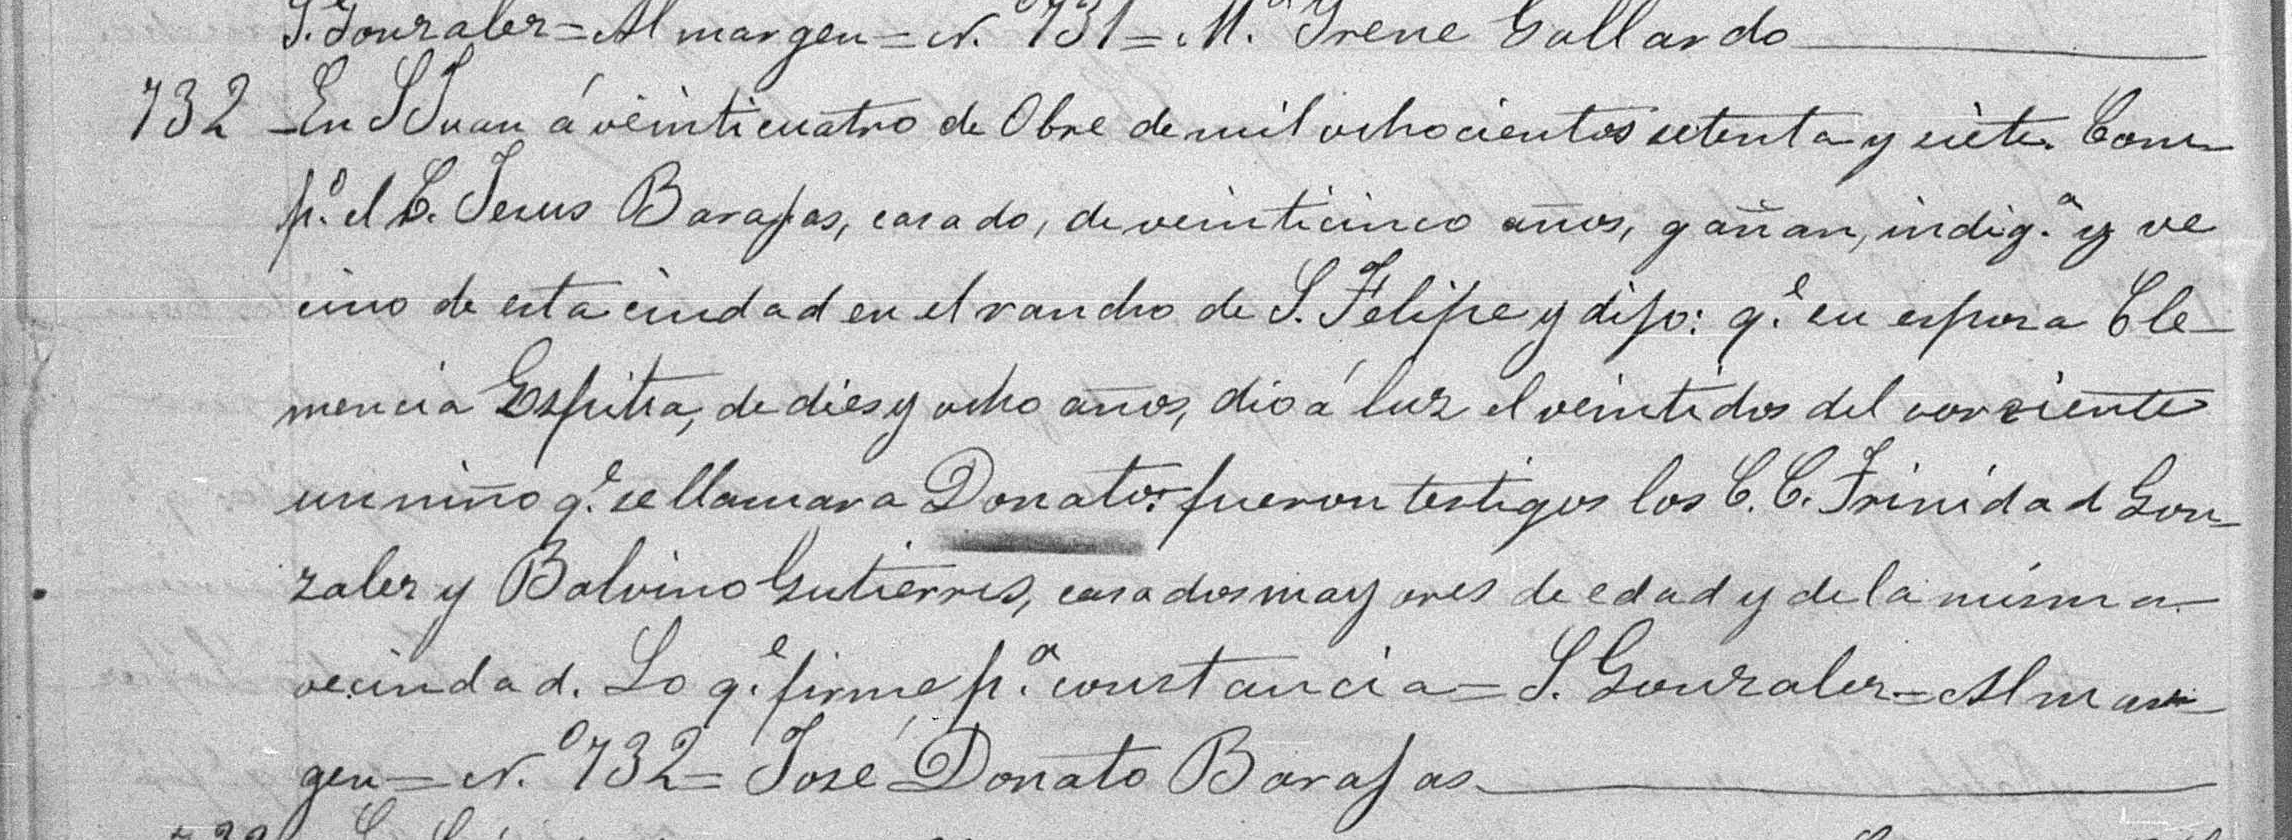 S. Gonzales = Al margen = N.° 731 = M.ª Yrene Gallardo
732 En S Juan á veinticuatro de Obre de mil ochocientos setenta y siete. Com-
p.° el C. Jesus Barajas, casado, de veinticinco años, gañan, indig.ª y ve
cino de esta ciudad en el rancho de S. Felipe y dijo: q.e su esposa Cle-
mencia Espitia, de dies y ocho años, dio á luz el veintidos del corriente
un niño q.e se llamara Donato: fueron testigos los C. C. Trinidad Gon-
zales y Balvino Gutierres, casados mayores de edad y de la misma
vecindad. Lo q.e firmé p.ª constancia = S. Gonzales = Al mar-
gen = N.° 732 = José Donato Barajas